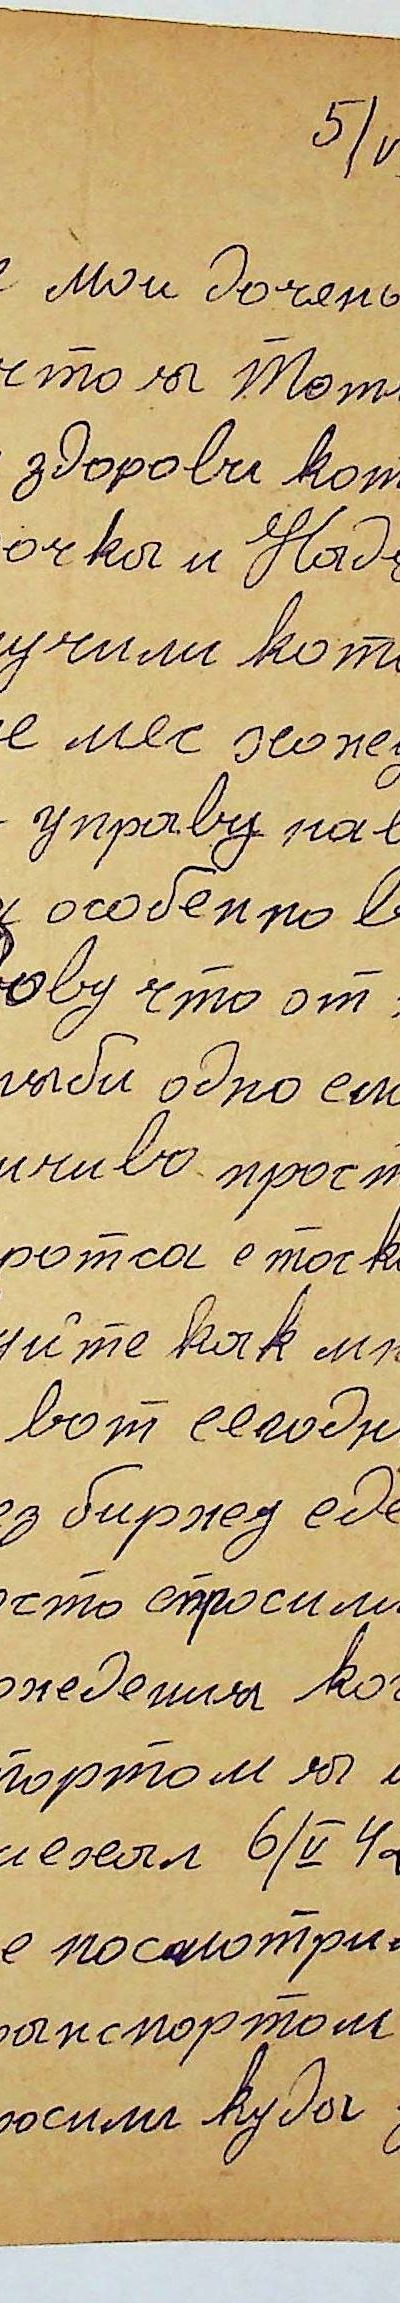 5/V
е мои дочень
что я Тот
здорови кот
очка и Над
учили кот
е мес може
управу на
особенно в
ову что от
ыби одно ем
ичиво прост
ротса е тоск
уйте как мн
вот сегодн
ез биржу еде
осто спросили
ождения ког
портом я
иехал 6/V 42
е посмотри
ранспортом
осили куда у